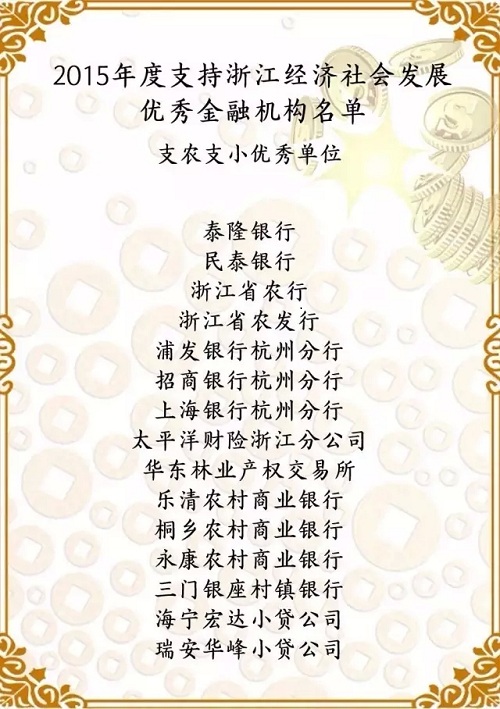 2015年度支持浙江经济社会发展
优秀金融机构名单
支农支小优秀单位
泰隆银行
民泰银行
浙江省农行
浙江省农发行
浦发银行杭州分行
招商银行杭州分行
上海银行杭州分行
太平洋财险浙江分公司
华东林业产权交易所
乐清农村商业银行
桐乡农村商业银行
永康农村商业银行
三门银座村镇银行
海宁宏达小贷公司
瑞安华峰小贷公司